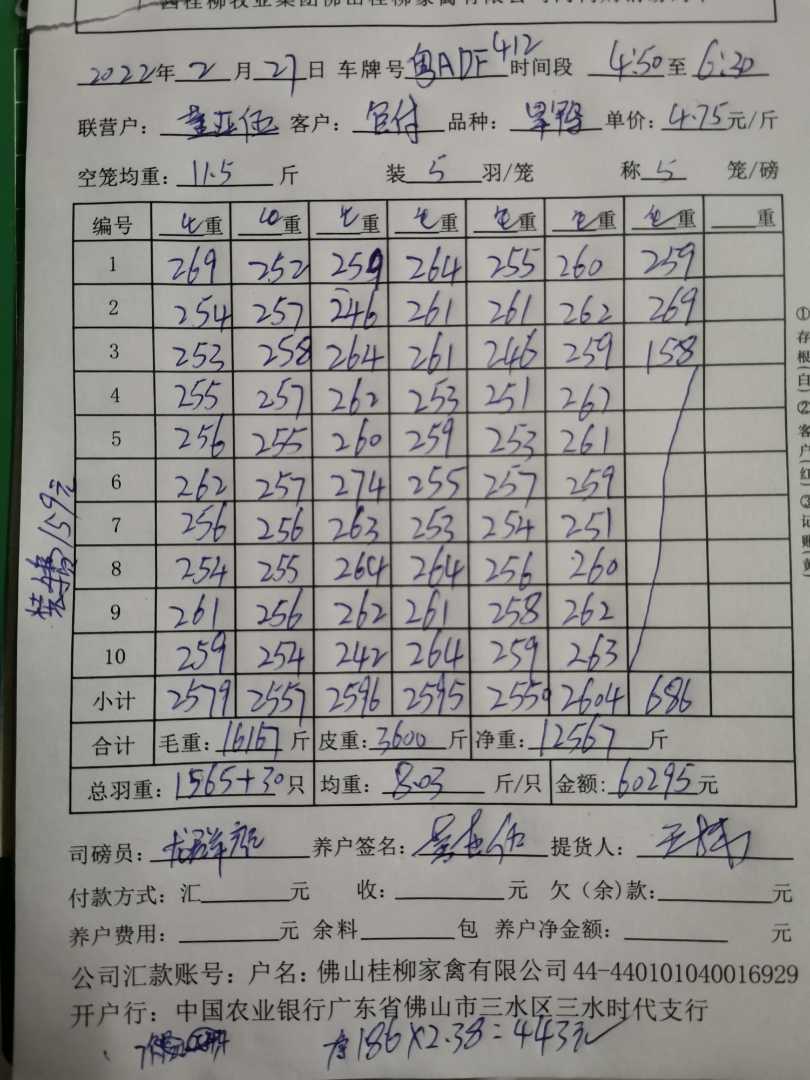 广西桂柳牧业集团佛山桂柳家禽有限公司
2022年2月27日 车牌号粤ADF412时间段 4:50至6:30
联营户: 客户: 品种: 单价:4.75元/斤
空笼均重:11.5斤 装5羽/笼 称5笼/磅
编号 毛重 重 毛重 毛重 毛重 毛重 毛重 重
1 269 252 259 264 255 260 259
2 254 257 246 261 261 262 269
3 253 258 264 261 246 259 158
4 255 257 262 253 251 267
5 256 255 260 259 253 261
6 262 257 274 255 257 259
7 256 256 263 253 254 251
8 254 255 264 264 256 260
9 261 256 262 261 258 262
10 259 254 242 264 259 263
小计 2579 2557 2596 2595 2550 2604 686
合计 毛重:16167斤 皮重:3600斤 净重:12567斤
总羽重:1565+30只 均重:8.03斤/只 金额:60295元
司磅员: 养户签名: 提货人:
付款方式:汇元 收:元 欠(余)款:元
养户费用:元 余料包 养户净金额:元
公司汇款账号:户名:佛山桂柳家禽有限公司44-440101040016929
开户行:中国农业银行广东省佛山市三水区三水时代支行
186×2.38=443元
159元
①存根(白)②客户(红)③记账(黄)